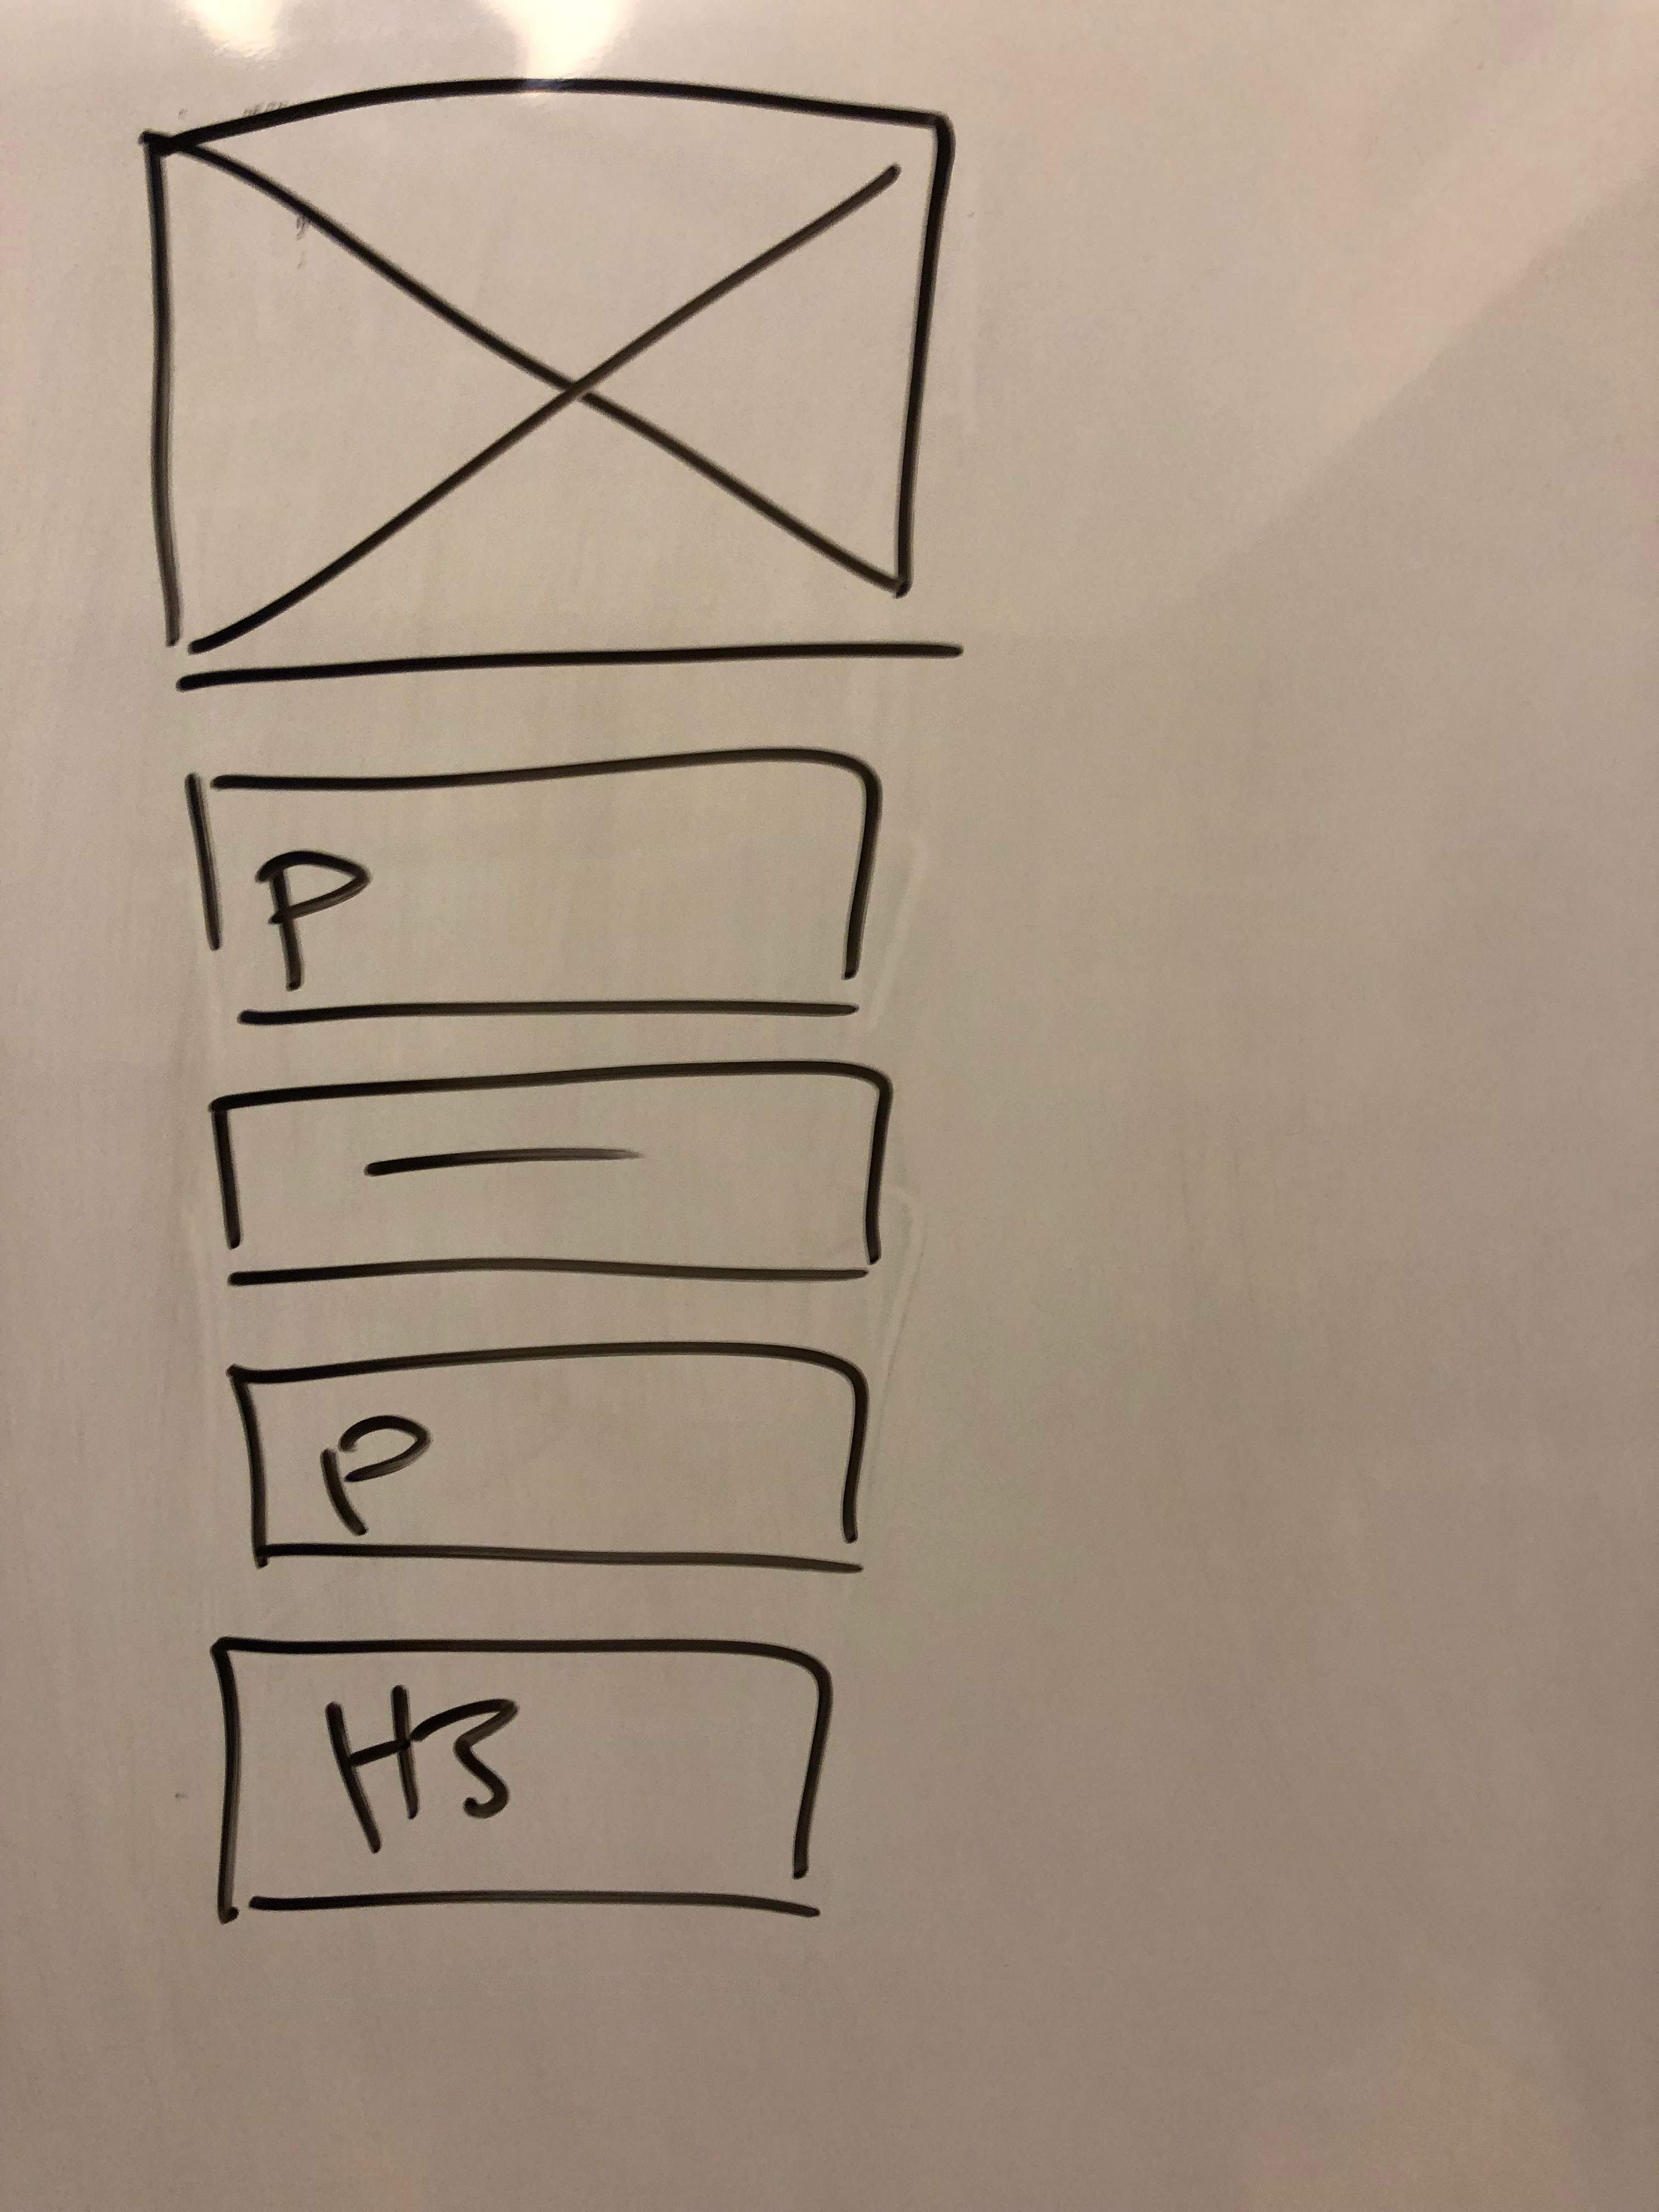 P
P
H3